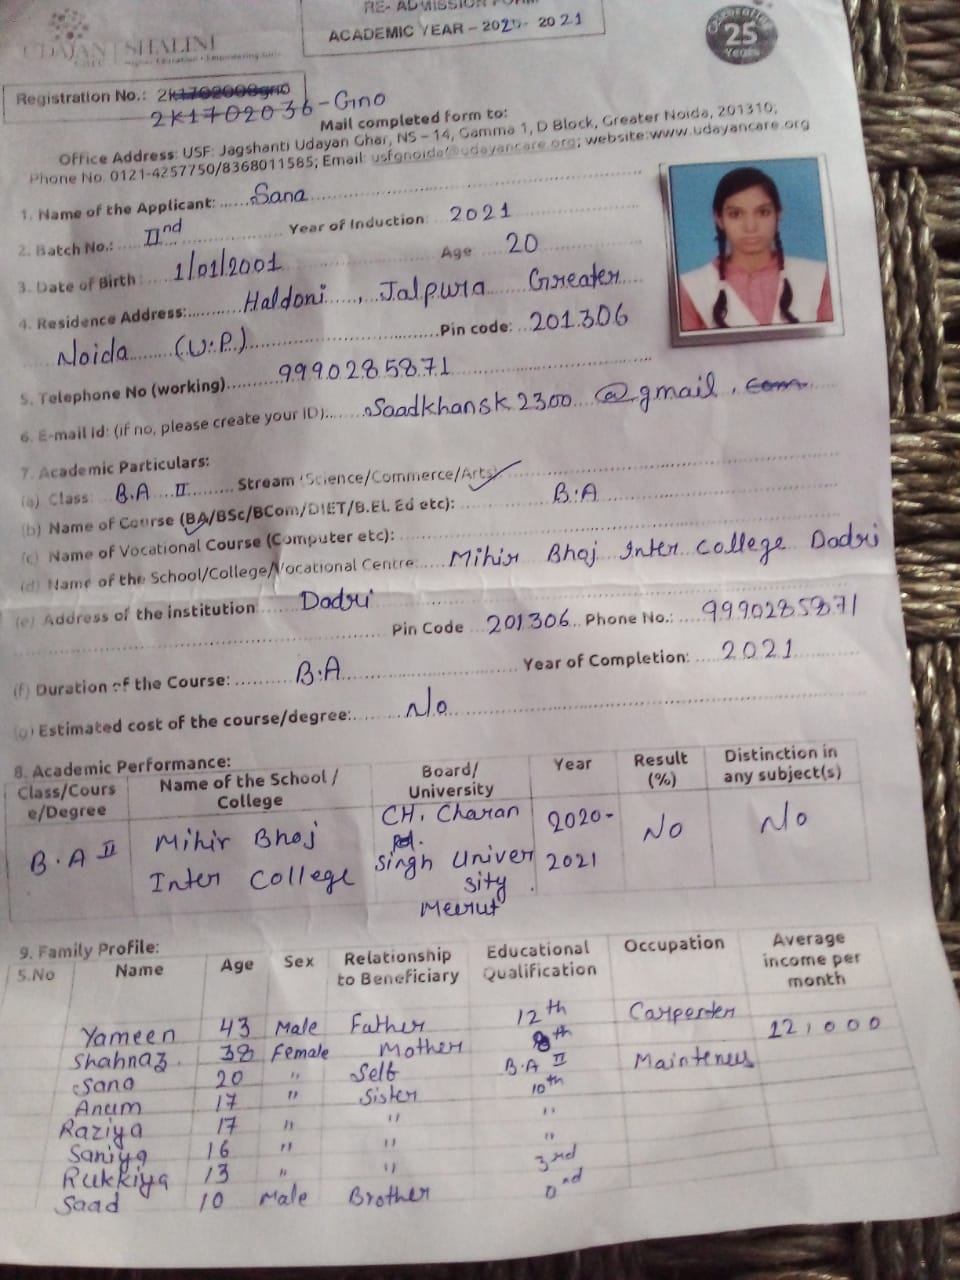 UDAYAN SHALINI
RE- ADMISSION FORM
ACADEMIC YEAR – 2020- 2021
25
Years
Registration No.: 2k1702008gno
2K1702036-Gno
Mail completed form to:
Office Address: USF: Jagshanti Udayan Ghar, NS – 14, Gamma 1, D Block, Greater Noida, 201310;
Phone No. 0121-4257750/8368011585; Email: usfgnoida@udayancare.org; website:www.udayancare.org
1. Name of the Applicant: Sana
2. Batch No.: IInd Year of Induction 2021
3. Date of Birth: 1/01/2001 Age 20
4. Residence Address: Haldoni, Jalpura Greater
Noida (U.P) Pin code: 201306
5. Telephone No (working) 9990285871
6. E-mail id: (if no, please create your ID) Saadkhansk2300 @gmail.com
7. Academic Particulars:
(a) Class: B.A II Stream (Science/Commerce/Arts)
(b) Name of Course (BA/BSc/BCom/DIET/B.El. Ed etc): B.A
(c) Name of Vocational Course (Computer etc):
(d) Name of the School/College/Vocational Centre Mihir Bhoj Inter College Dadri
(e) Address of the institution Dadri
Pin Code 201306 Phone No.: 9990285871
(f) Duration of the Course: B.A Year of Completion: 2021
(g) Estimated cost of the course/degree: No
8. Academic Performance:
Class/Cours e/Degree Name of the School / College Board/ University Year Result (%) Distinction in any subject(s)
B.A II Mihir Bhoj Inter College CH. Charan Singh Univer sity Meerut 2020- 2021 No No
9. Family Profile:
S.No Name Age Sex Relationship to Beneficiary Educational Qualification Occupation Average income per month
Yameen 43 Male Father 12th Carpenter 12,000
Shahnaz 38 Female Mother 8th
Sana 20 " Self B.A II
Anum 17 " Sister 10th
Raziya 17 " " "
Saniya 16 " " "
Rukkiya 13 " " 3rd
Saad 10 Male Brother